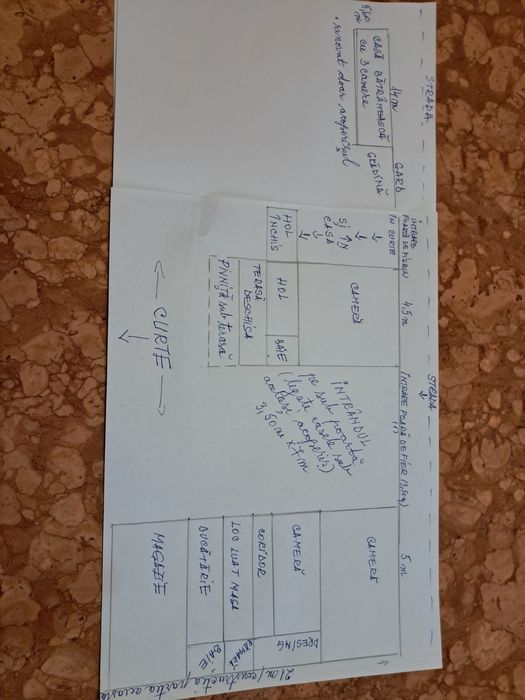 STRADA
14 m
GARD
6,60 m
CASĂ BĂTRÂNEASCĂ
cu 3 camere
• renovat doar acoperișul
GRĂDINĂ
INTRARE
POARTĂ DE FIER
ÎN CURTE
ȘI ÎN
CASA
4,5 m
HOL
ÎNCHIS
CAMERĂ
HOL
BAIE
TERASĂ
DESCHISĂ
PIVNIȚĂ sub terasă
CURTE
STRADA
INTRARE POARTĂ DE FIER (3,50m)
INTRÂNDUL
pe sub poartă
(legate casele sub
același acoperiș)
3,50 m x 7 m
5 m
CAMERĂ
CAMERĂ
DRESING
CORIDOR
LOC LUAT MASA
CĂMARĂ
BUCĂTĂRIE
BAIE
MAGAZIE
21 m/construcția/partea aceasta